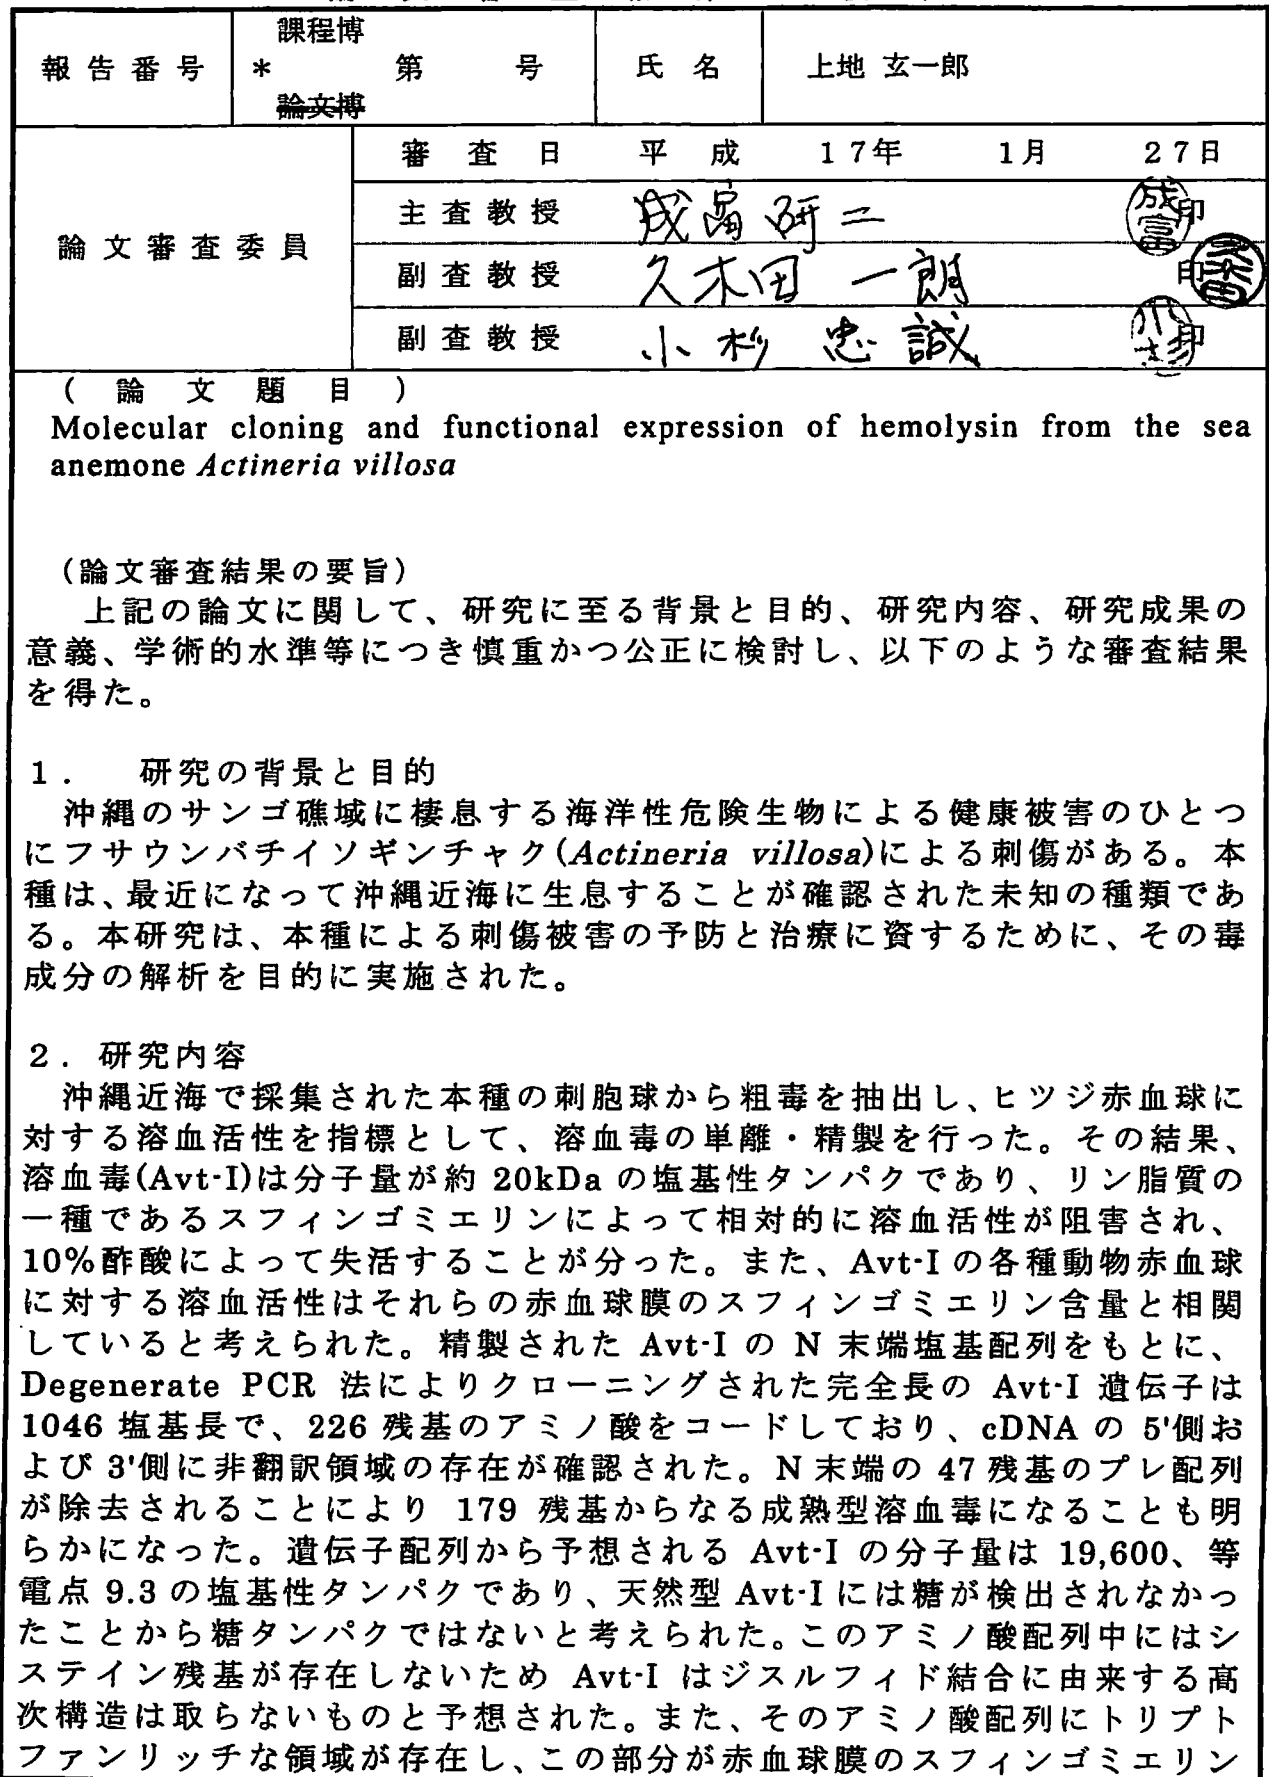 課程博
報告番号 * 第 号 氏名 上地 玄一郎
論文博
審査日 平成 17年 1月 27日
主査教授 成富研二 成富 印
論文審査委員
副査教授 久木田 一朗 印
副査教授 小杉 忠誠 小杉 印
(論文題目)
Molecular cloning and functional expression of hemolysin from the sea
anemone Actineria villosa
(論文審査結果の要旨)
上記の論文に関して、研究に至る背景と目的、研究内容、研究成果の
意義、学術的水準等につき慎重かつ公正に検討し、以下のような審査結果
を得た。
1. 研究の背景と目的
沖縄のサンゴ礁域に棲息する海洋性危険生物による健康被害のひとつ
にフサウンバチイソギンチャク(Actineria villosa)による刺傷がある。本
種は、最近になって沖縄近海に生息することが確認された未知の種類であ
る。本研究は、本種による刺傷被害の予防と治療に資するために、その毒
成分の解析を目的に実施された。
2. 研究内容
沖縄近海で採集された本種の刺胞球から粗毒を抽出し、ヒツジ赤血球に
対する溶血活性を指標として、溶血毒の単離・精製を行った。その結果、
溶血毒(Avt-I)は分子量が約 20kDa の塩基性タンパクであり、リン脂質の
一種であるスフィンゴミエリンによって相対的に溶血活性が阻害され、
10%酢酸によって失活することが分った。また、Avt-I の各種動物赤血球
に対する溶血活性はそれらの赤血球膜のスフィンゴミエリン含量と相関
していると考えられた。精製された Avt-I の N 末端塩基配列をもとに、
Degenerate PCR 法によりクローニングされた完全長の Avt-I 遺伝子は
1046 塩基長で、226 残基のアミノ酸をコードしており、cDNA の 5'側お
よび 3'側に非翻訳領域の存在が確認された。N 末端の 47 残基のプレ配列
が除去されることにより 179 残基からなる成熟型溶血毒になることも明
らかになった。遺伝子配列から予想される Avt-I の分子量は 19,600、等
電点 9.3 の塩基性タンパクであり、天然型 Avt-I には糖が検出されなかっ
たことから糖タンパクではないと考えられた。このアミノ酸配列中にはシ
ステイン残基が存在しないため Avt-I はジスルフィド結合に由来する高
次構造は取らないものと予想された。また、そのアミノ酸配列にトリプト
ファンリッチな領域が存在し、この部分が赤血球膜のスフィンゴミエリン